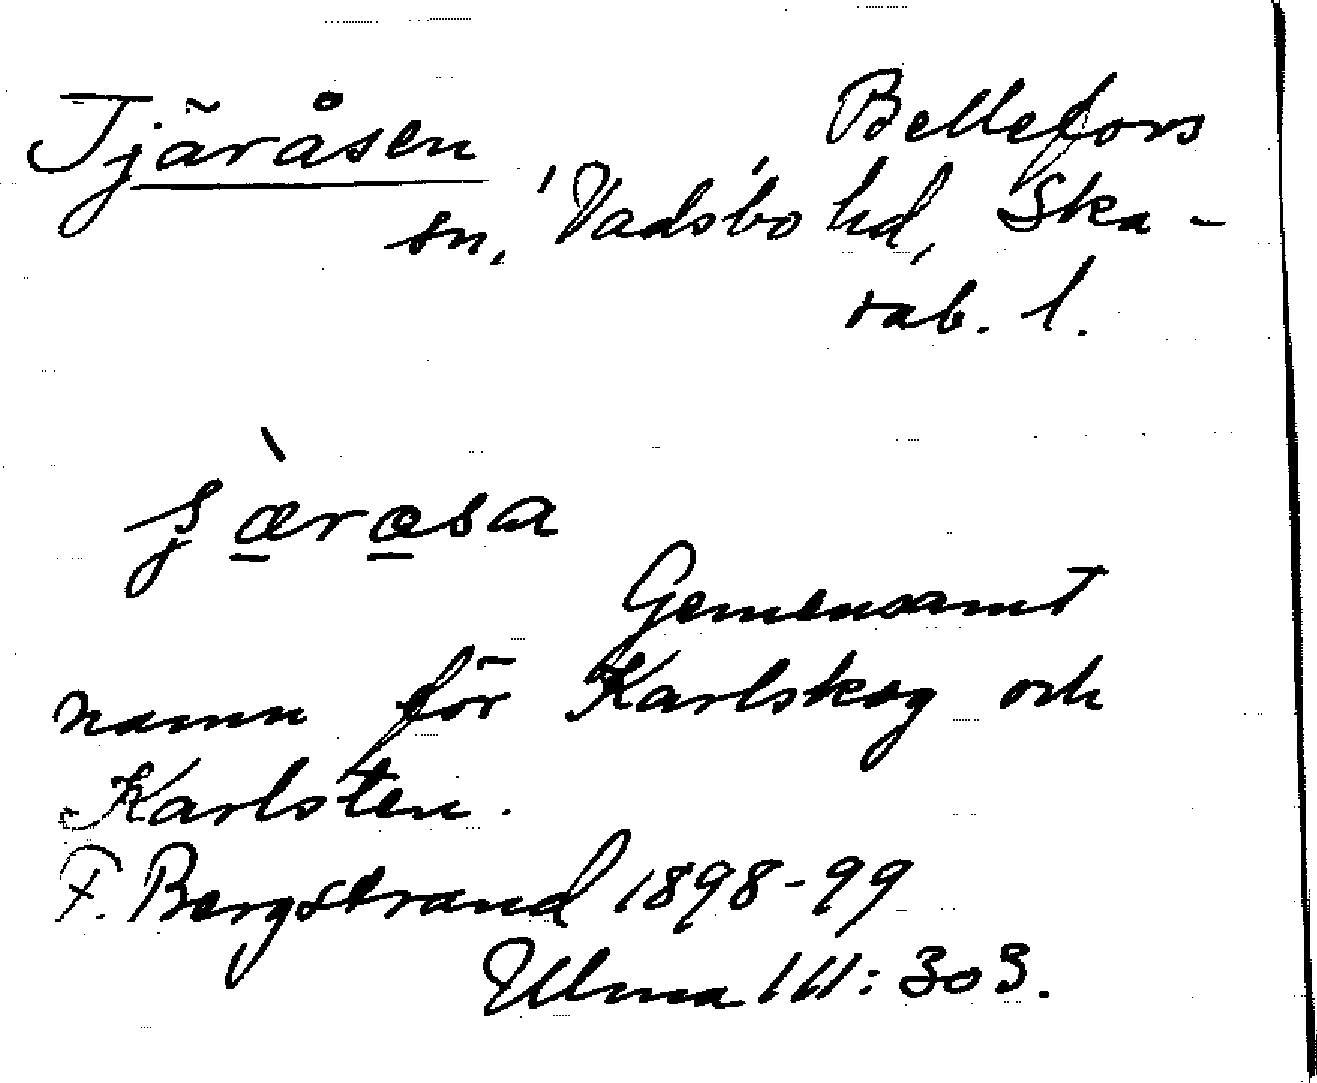 Tjäråsen Bellefors
sn, Vadsbo hd, Ska-
rab. l.
Gemensamt
namn för Karlskog och
Karlsten.
F. Bergstrand 1898-99
Ulma 111:303.